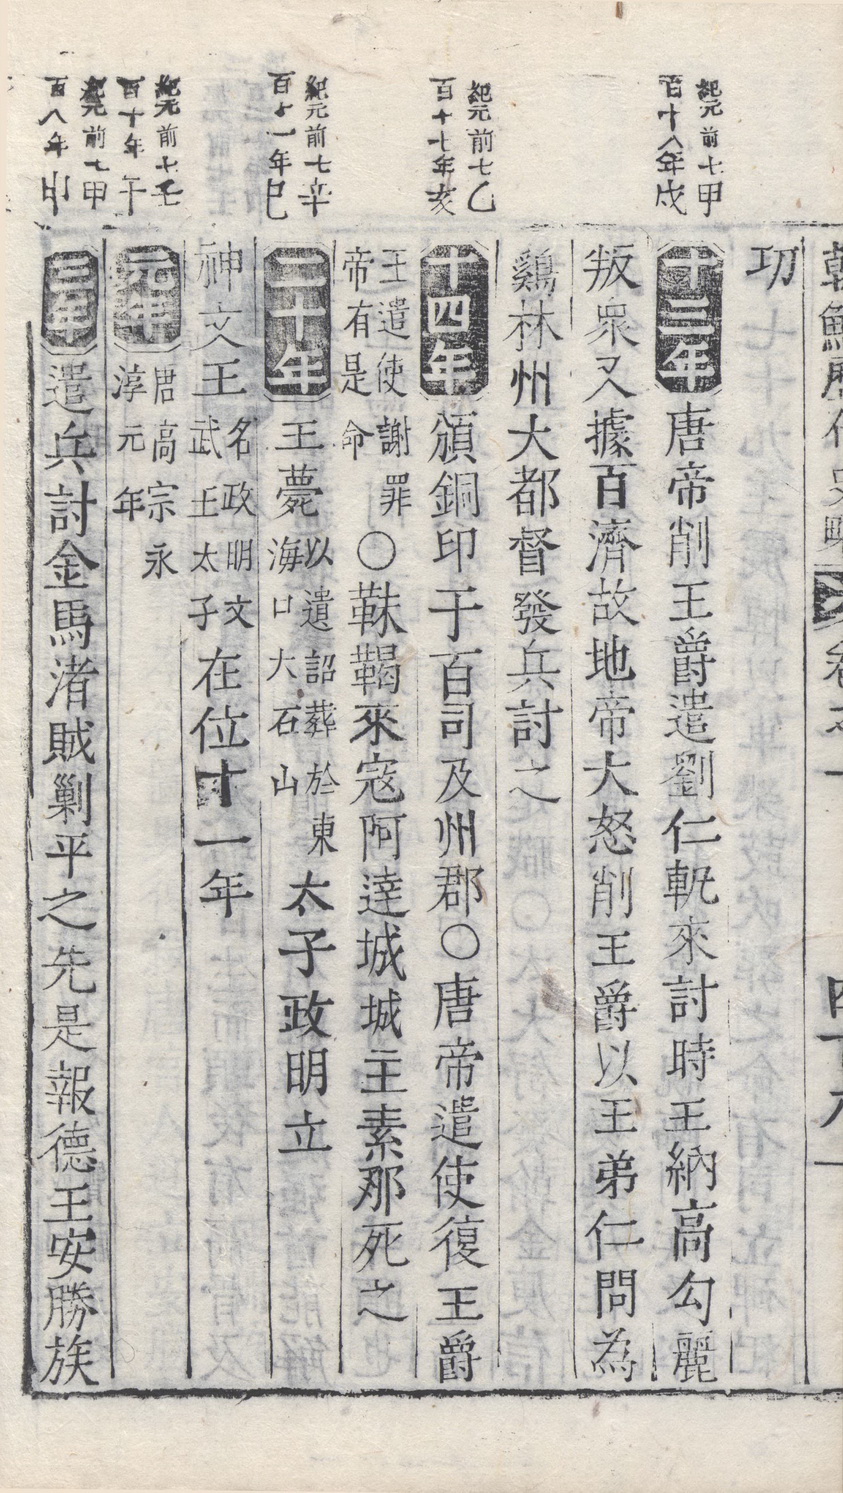 朝鮮歷代史略 卷之一
功
紀元前七甲
百十八年戌
十三年唐帝削王爵遣劉仁軌來討時王納高勾麗
叛衆又據百濟故地帝大怒削王爵以王弟仁問為
鷄林州大都督發兵討之
紀元前七乙
百十七年亥
十四年頒銅印于百司及州郡○唐帝遣使復王爵
王遣使謝罪
帝有是命
○靺鞨來寇阿達城城主素那死之
紀元前七辛
百十一年巳
二十年王薨
以遺詔葬於東
海口大石山
太子政明立
神文王
名政明文
武王太子
在位十一年
紀元前七壬
百十年午
元年
唐高宗永
淳元年
紀元前七甲
百八年申
三年遣兵討金馬渚賊剿平之先是報德王安勝族